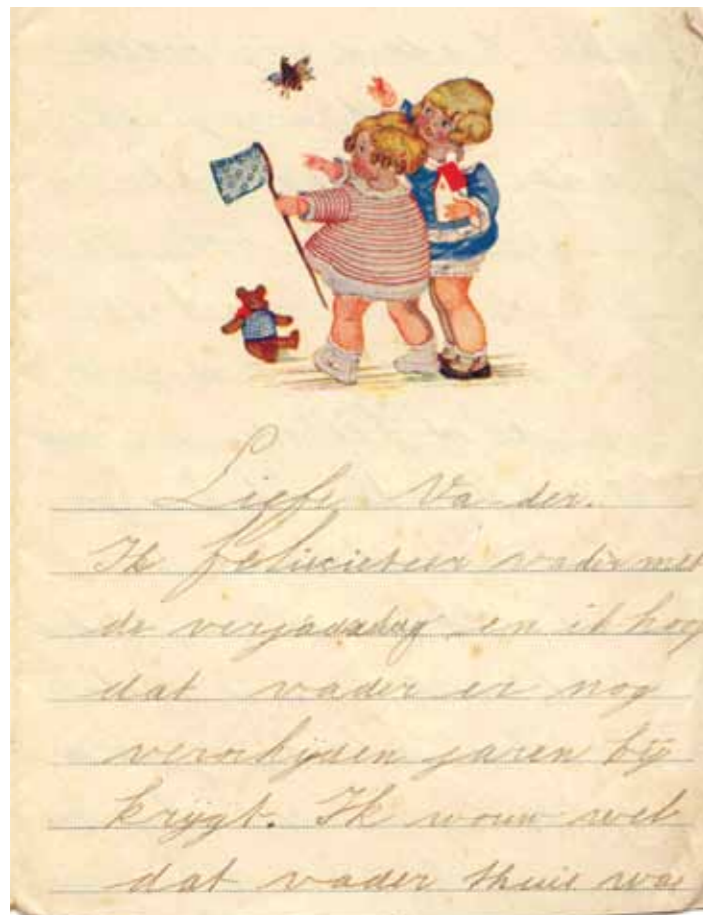 Liefe Va der.
Ik felisieteer vader met
de verjaardag en ik hop
dat vader er nog
verschijden jaren bij
krijgt. Ik wouw wel
dat vader thuis was